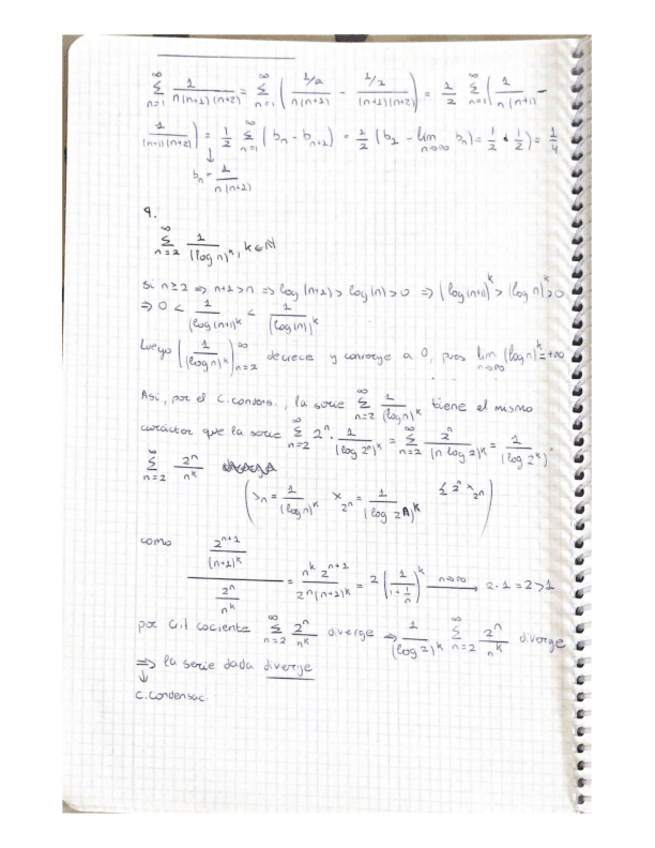 ∞ ∑ n=1 1/(n(n+1)(n+2)) = ∞ ∑ n=1 ( (1/2)/(n(n+1)) - (1/2)/((n+1)(n+2)) ) = 1/2 ∞ ∑ n=1 ( 1/(n(n+1)) -
1/((n+1)(n+2)) ) = 1/2 ∞ ∑ n=1 (b_n - b_{n+1}) = 1/2 (b_1 - lim n→∞ b_n) = 1/2 · 1/2) = 1/4
↓
b_n = 1/(n(n+1))
9.
∞ ∑ n=2 1/(log n)^k, k∈ℕ
Si n≥2 ⇒ n+1>n ⇒ log(n+1) > log(n) > 0 ⇒ (log(n+1))^k > (log n)^k > 0
⇒ 0 < 1/(log(n+1))^k < 1/(log(n))^k
Luego (1/(log n)^k)_{n=2}^∞ decrece y converge a 0, pues lim n→∞ (log n)^k = +∞
Así, por el C.condens., la serie ∞ ∑ n=2 1/(log n)^k tiene el mismo
carácter que la serie ∞ ∑ n=2 2^n · 1/(log 2^n)^k = ∞ ∑ n=2 2^n/(n log 2)^k = 1/(log 2^k) ·
∞ ∑ n=2 2^n/n^k
( x_n = 1/(log n)^k x_{2^n} = 1/(log 2^n)^k ∑ 2^n x_{2^n} )
como (2^{n+1}/(n+1)^k)/(2^n/n^k) = n^k 2^{n+1}/(2^n (n+1)^k) = 2 (1/(1+1/n))^k n→∞ → 2·1 = 2 > 1
por crit cociente ∞ ∑ n=2 2^n/n^k diverge ⇒ 1/(log 2)^k ∞ ∑ n=2 2^n/n^k diverge
⇒ la serie dada diverge
↓
C.condensac.